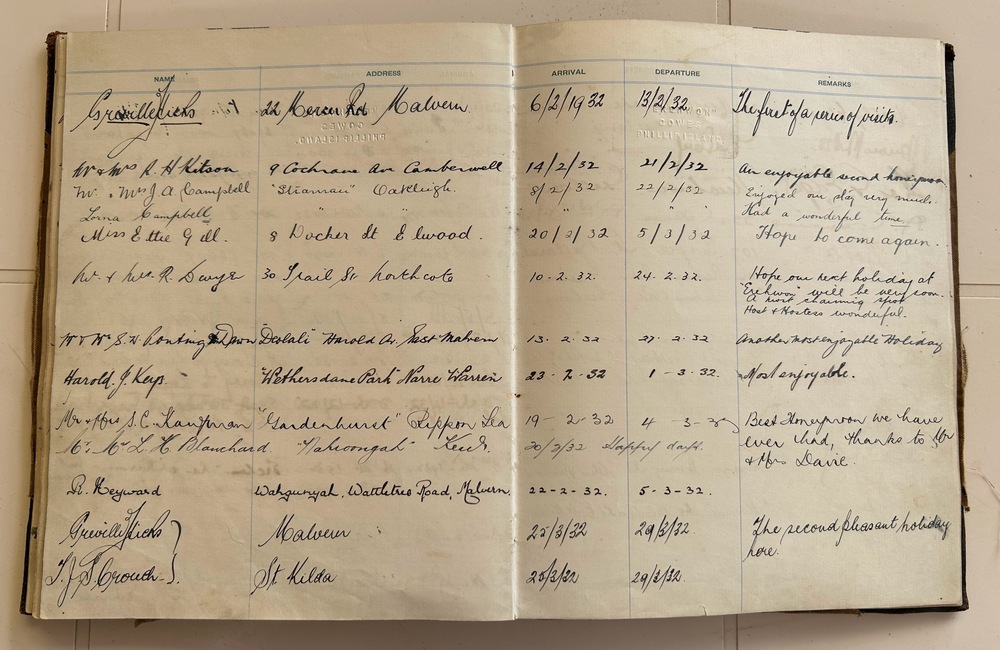 NAME ADDRESS ARRIVAL DEPARTURE REMARKS
Greville Hicks 22 Mercer Rd Malvern 6/2/1932 13/2/32 The first of a series of visits.
COWES
PHILLIP ISLAND.
Mr & Mrs R. H Kitson 9 Cochrane Av Camberwell 14/2/32 21/2/32 An enjoyable second honeymoon
Mr. & Mrs J A Campbell Oakleigh. 8/2/32 22/2/32 Enjoyed our stay very much.
Lorna Campbell " " " " Had a wonderful time.
Miss Ettie Gill. 8 Docker St Elwood. 20/2/32 5/3/32 Hope to come again.
Mr. & Mrs. R. Dwyer 30 St Northcote 10.2.32. 24.2.32. Hope our next holiday at
"Erehwon" will be very soon.
A most charming spot
Host & Hostess wonderful.
Mr & Mrs S. W Ponting & Dawn "Deolali" Harold Av, East Malvern 13. 2. 32 27. 2. 32 Another most enjoyable Holiday
Harold. J. Keys. "Wethersdane Park" Narre Warren 23-2-32 1-3-32. Most enjoyable.
Mr & Mrs S. C. Kaufman "Gardenhurst" Rippon Lea 19-2-32 4-3-32 Best Honeymoon we have
ever had, thanks to Mr
Mr. Mrs L. H. Blanchard. Kew. 20/2/32 Happy days.
& Mrs Davie.
R. Heyward Wahgunyah, Wattletree Road, Malvern. 22-2-32. 5-3-32.
Greville Hicks Malvern 25/3/32 29/3/32 The second pleasant holiday
here.
T. J. S. Crouch St. Kilda 25/3/32 29/3/32.